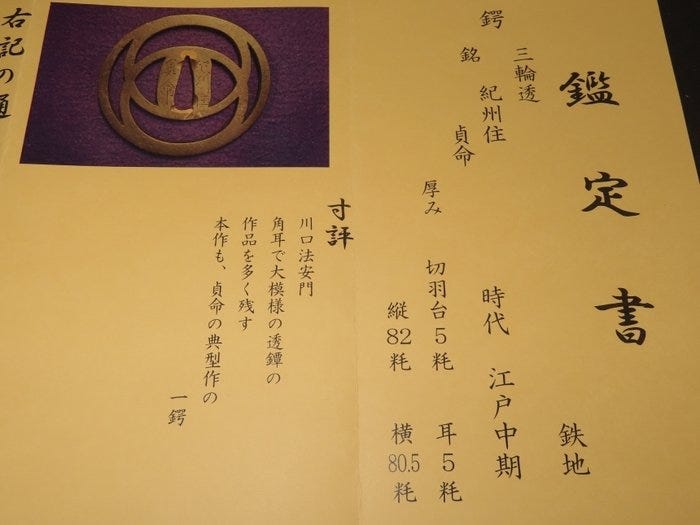 鑑定書
鉄地
三輪透
鍔
銘 紀州住 貞命
時代 江戸中期
厚み 切羽台5粍 耳5粍
縦82粍 横80.5粍
寸評
川口法安門
角耳で大模様の透鐔の
作品を多く残す
本作も、貞命の典型作の
一鍔
右記の通